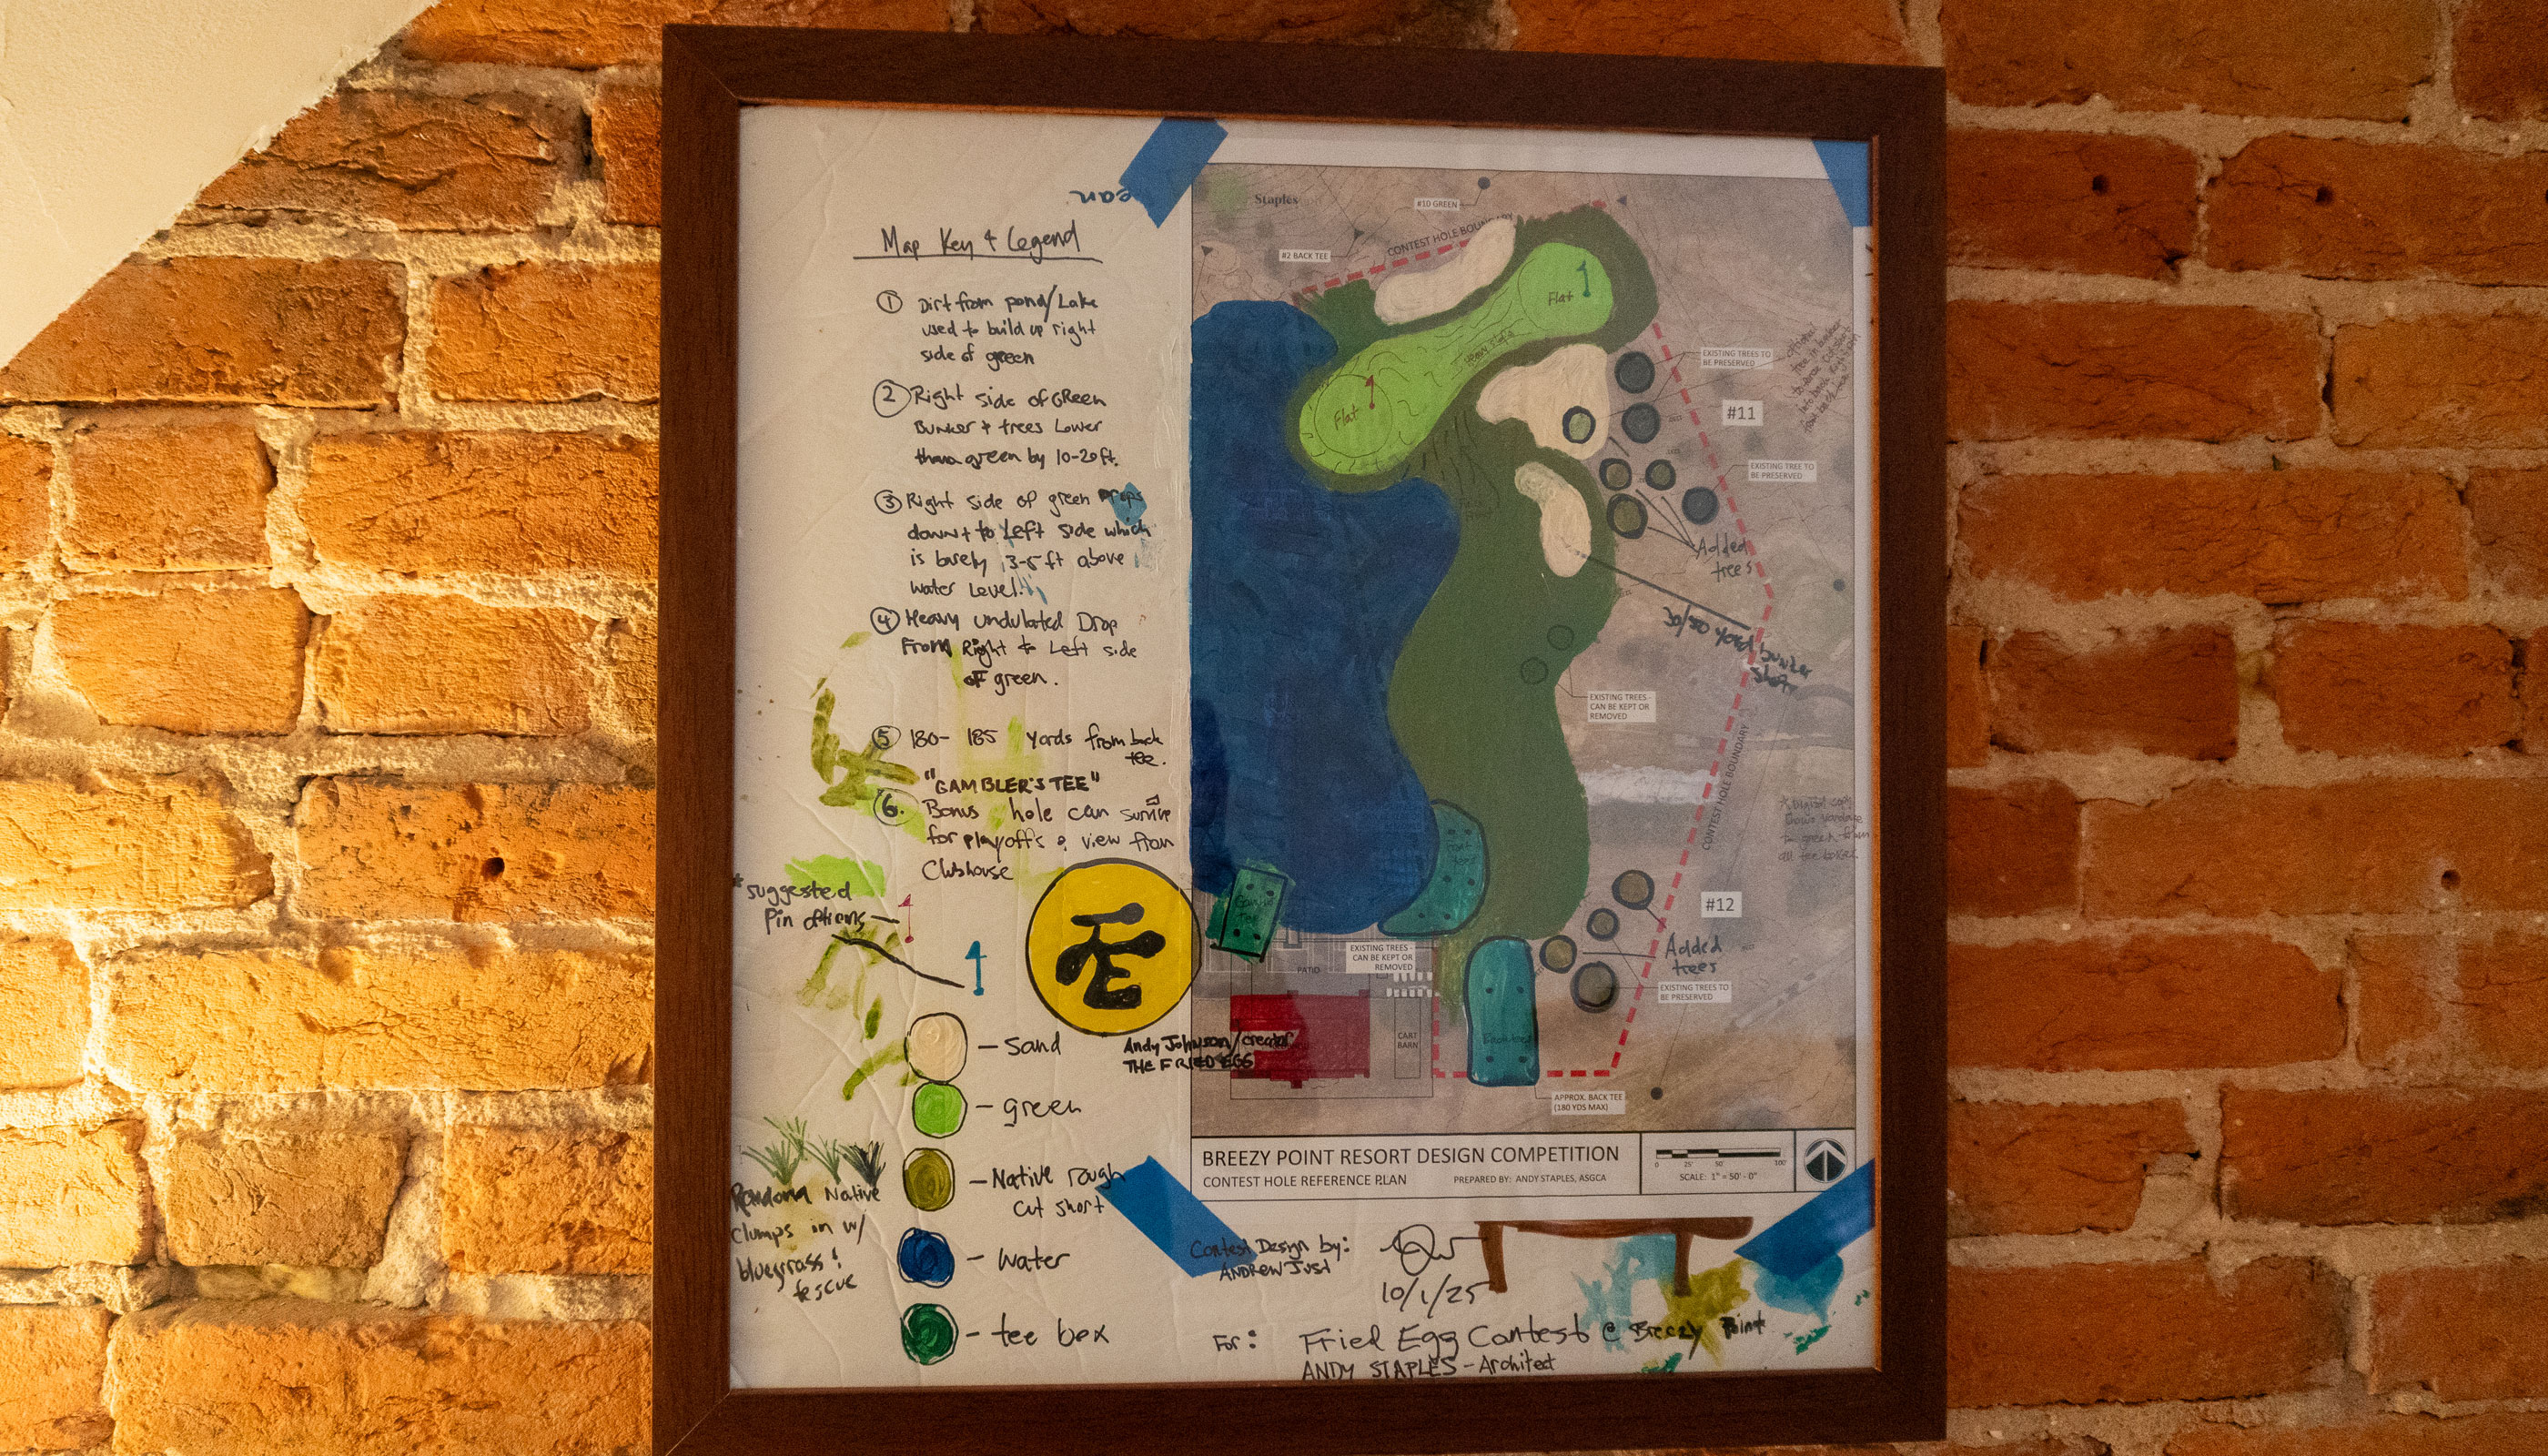 Map Key & Legend
① Dirt from pond/Lake
used to build up right
side of green
② Right side of GReen
Bunker + trees Lower
than green by 10-20ft.
③ Right side of green Drops
down to Left side which
is barely 3-5ft above
water Level.
④ Heavy undulated Drop
From Right to Left side
OF green.
⑤ 180- 185 yards from back
tee.
"GAMBLER'S TEE"
⑥. Bonus hole can
for playoffs & view from
Clubhouse
*Suggested
Pin options
Andy Johnson/creator
THE FRIED EGG
- Sand
- green
- Native rough
cut short
- water
- tee box
Random Native
clumps in w/
bluegrass &
fescue
Staples
#10 GREEN
#2 BACK TEE
CONTEST HOLE BOUNDARY
Flat
Flat
EXISTING TREES TO
BE PRESERVED
#11
EXISTING TREE TO
BE PRESERVED
Added
trees
30/50 yard bunker
shot
EXISTING TREES -
CAN BE KEPT OR
REMOVED
CONTEST HOLE BOUNDARY
#12
Added
trees
EXISTING TREES TO
BE PRESERVED
EXISTING TREES -
CAN BE KEPT OR
REMOVED
PATIO
CART
BARN
APPROX. BACK TEE
(180 YDS MAX)
BREEZY POINT RESORT DESIGN COMPETITION
CONTEST HOLE REFERENCE PLAN
PREPARED BY: ANDY STAPLES, ASGCA
0 25' 50' 100'
SCALE: 1" = 50'-0"
Contest Design by:
ANDREW JUST
10/1/25
For: Fried Egg Contest @ Breezy Point
ANDY STAPLES - Architect